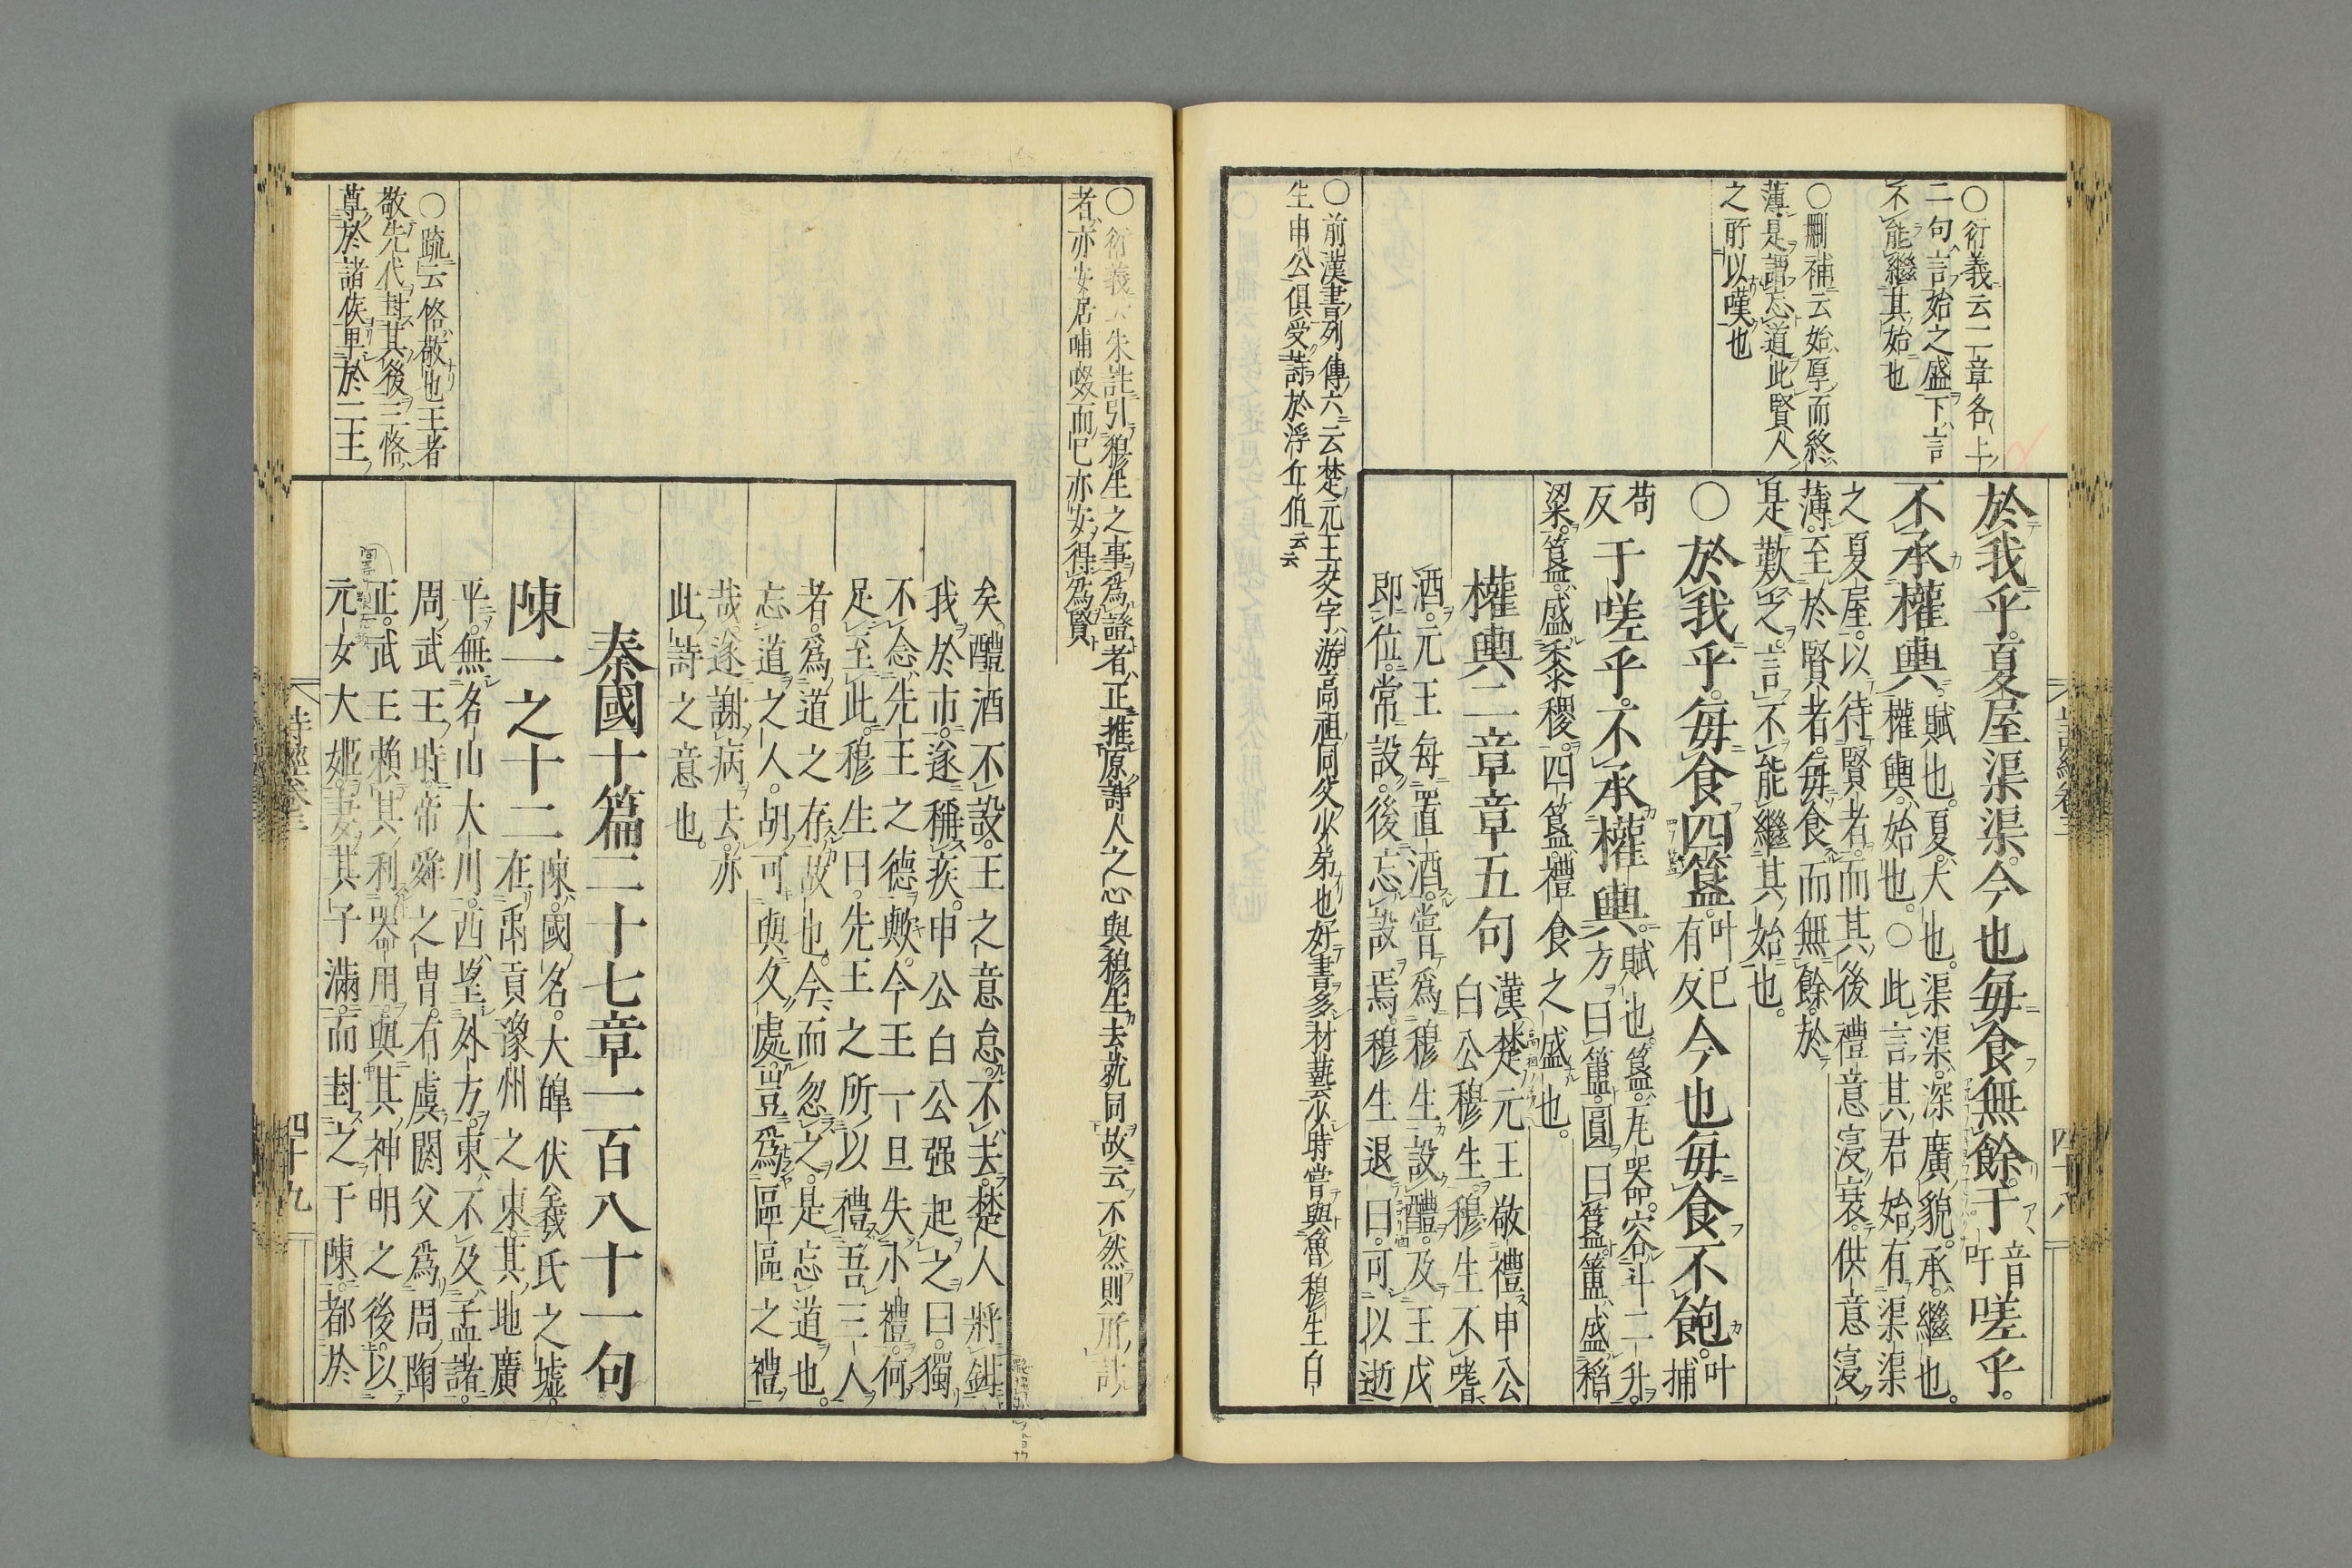 ○衍義云二章各上
二句言始之盛下言
不能繼其始也
○刪補云始厚而終
薄是謂忘道此賢人
之所以嘆也
於我乎夏屋渠渠。今也每食無餘。于音吁嗟乎。
不承權輿。賦也。夏、大也。渠渠、深廣貌。承、繼也。
權輿、始也。○此言其君始有渠渠
之夏屋。以待賢者。而其後禮意寖衰。供意寖
薄。至於賢者。每食而無餘。於
是歎之。言不能繼其始也。
○於我乎。每食四簋。叶已有反今也每食不飽。叶捕
苟反于嗟乎。不承權輿。賦也。簋、瓦器。容斗二升。
方曰簠。圓曰簋。簠、盛稻
粱。簋、盛黍稷。四簋、禮食之盛也。
權輿二章章五句
漢楚元王敬禮申公
白公穆生。穆生不嗜
酒。元王每置酒。嘗爲穆生設醴。及王戊
即位。常設。後忘設焉。穆生退曰。可以逝
○前漢書列傳六云楚元王交字游高祖同父少弟也好書多材藝少時嘗與魯穆生白
生申公俱受詩於浮丘伯云云
四十八
○衍義云朱註引穆生之事爲證者正推原詩人之心與穆生去就同故云不然則所謂
者亦安居哺啜而已亦安得爲賢
矣。醴酒不設。王之意怠。不去。楚人將鉗
我於市。遂稱疾。申公白公强起之曰。獨
不念先王之德歟。今王一旦失小禮。何
足至此。穆生曰。先王之所以禮吾三人
者。爲道之存故也。今而忽之。是忘道也。
忘道之人。胡可與久處。豈爲區區之禮
哉。遂謝病去。亦
此詩之意也。
秦國十篇二十七章一百八十一句
陳一之十二
陳、國名。大皥伏羲氏之墟。
在禹貢豫州之東。其地廣
平。無名山大川。西望外方。東不及孟諸。
周武王時。帝舜之胄。有虞閼父爲周陶
正。武王賴其利器用。與其神明之後。以
元女大姬。妻其子滿。而封之于陳。都於
○疏云恪敬也王者
敬先代封其後三恪
尊於諸侯卑於二王
詩經卷三
四十九